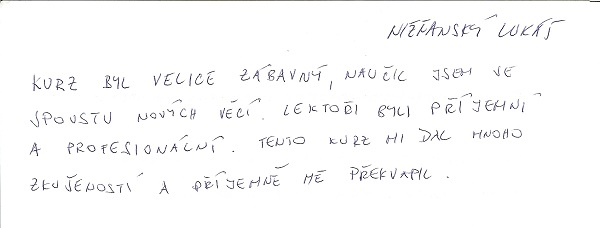 NIŽŇANSKÝ LUKÁŠ
KURZ BYL VELICE ZÁBAVNÝ, NAUČIL JSEM SE
SPOUSTU NOVÝCH VĚCÍ. LEKTOŘI BYLI PŘÍJEMNÍ
A PROFESIONÁLNÍ. TENTO KURZ MI DAL MNOHO
ZKUŠENOSTÍ A PŘÍJEMNĚ MĚ PŘEKVAPIL.